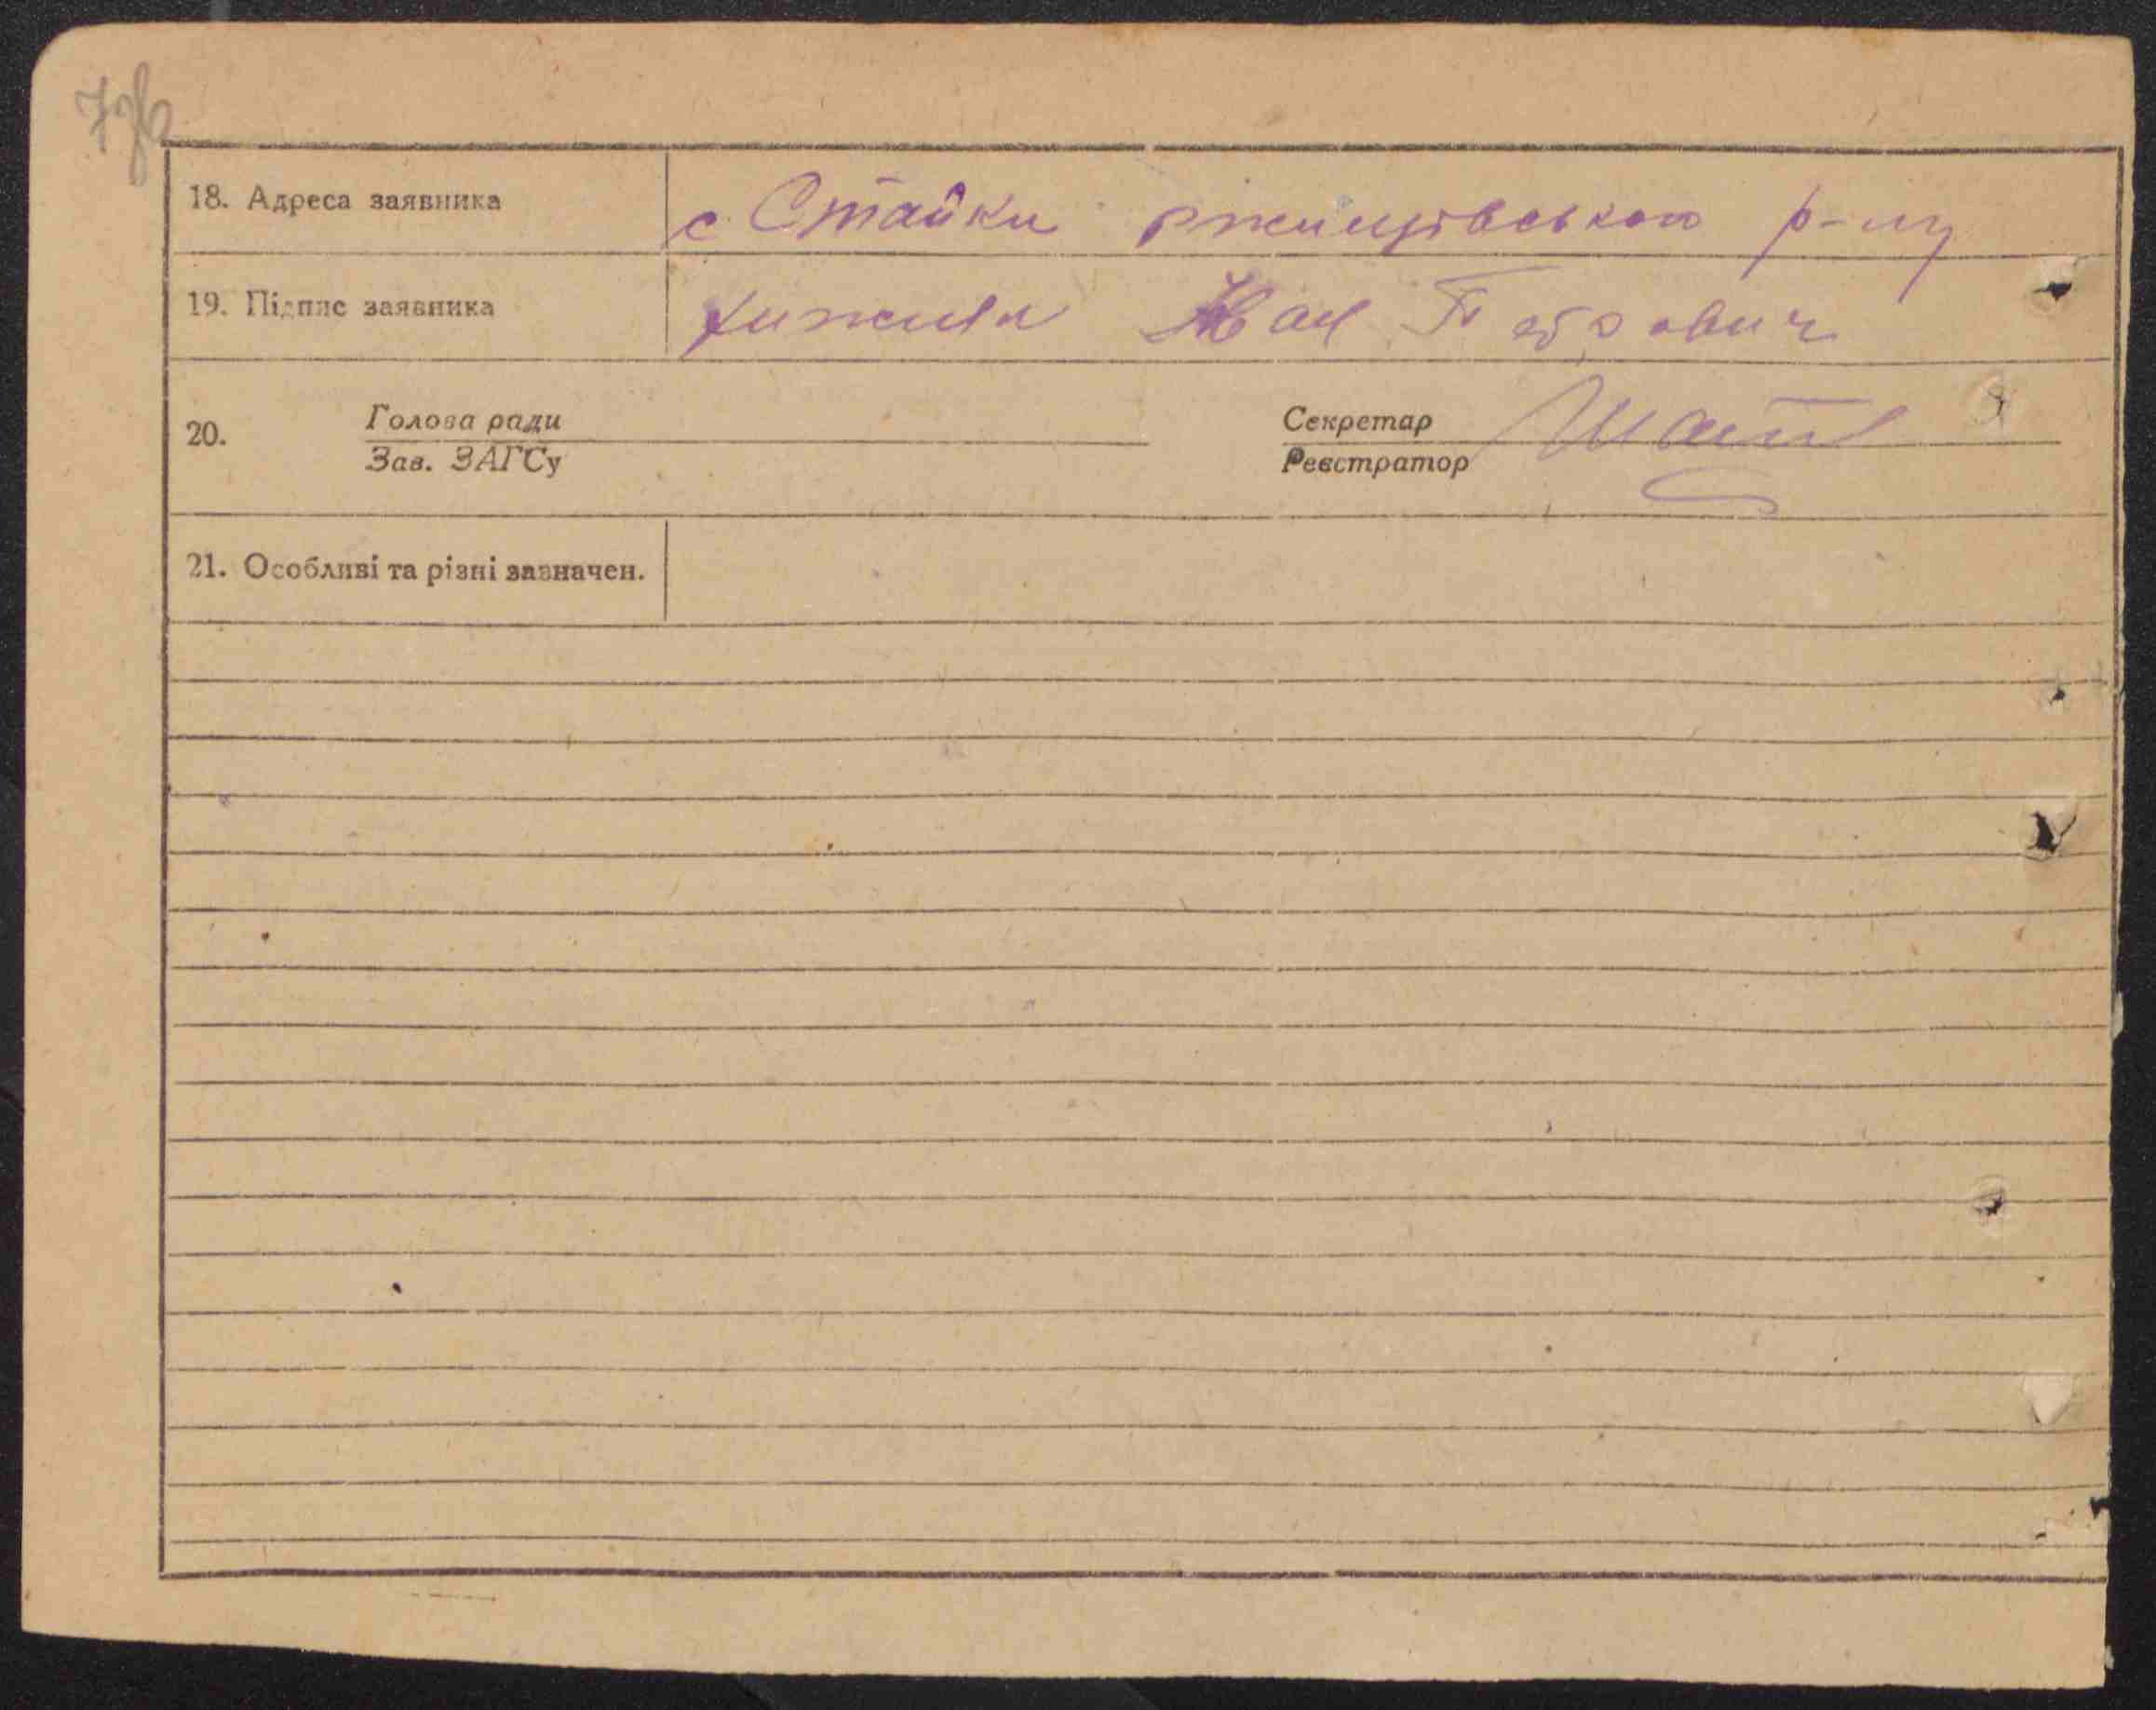 18. Адреса заявника с. Стайки ржищівського р-ну
19. Підпис заявника Хижняк Іван Петрович
20. Голова ради Секретар
Зав. ЗАГСу Реєстратор
21. Особливі та різні зазначен.